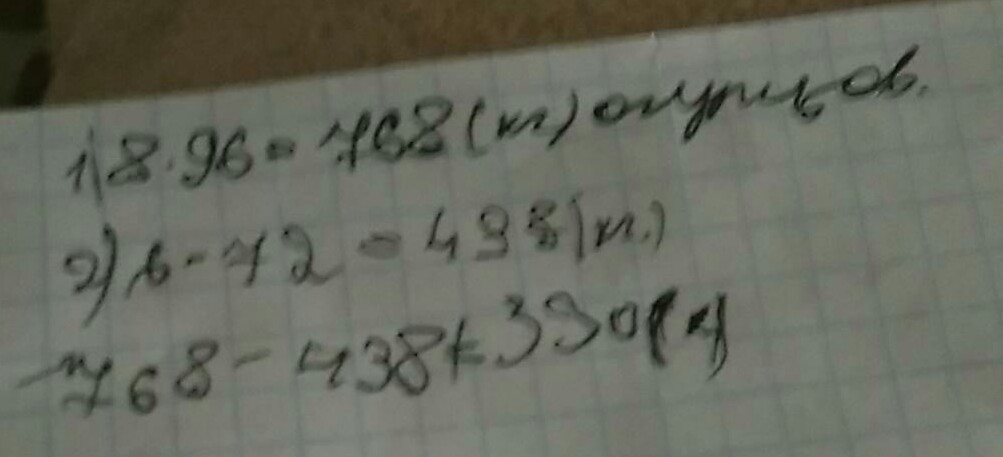 1) 8·96=768(кг) огурцов.
2) 6·72=438(кг.)
768-438=330(кг)